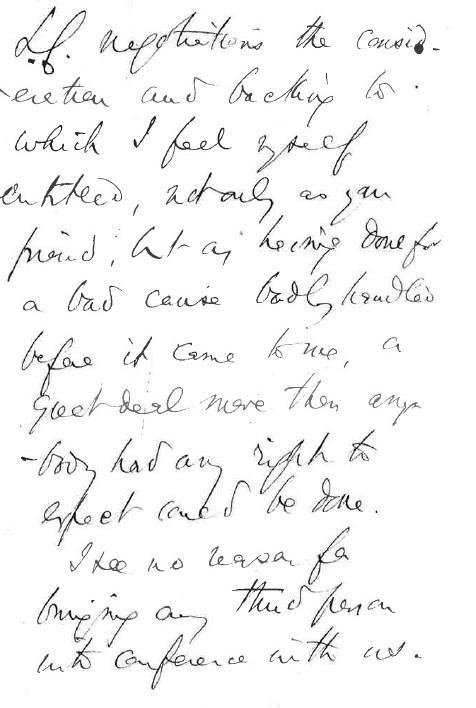 L.G. negotiations the consid-
-eration and backing to
which I feel myself
entitled, not only as your
friend, but as having done for
a bad cause badly handled
before it came to me, a
great deal more than any
-body had any right to
expect could be done.
I see no reason for
bringing any third person
into conference with us.